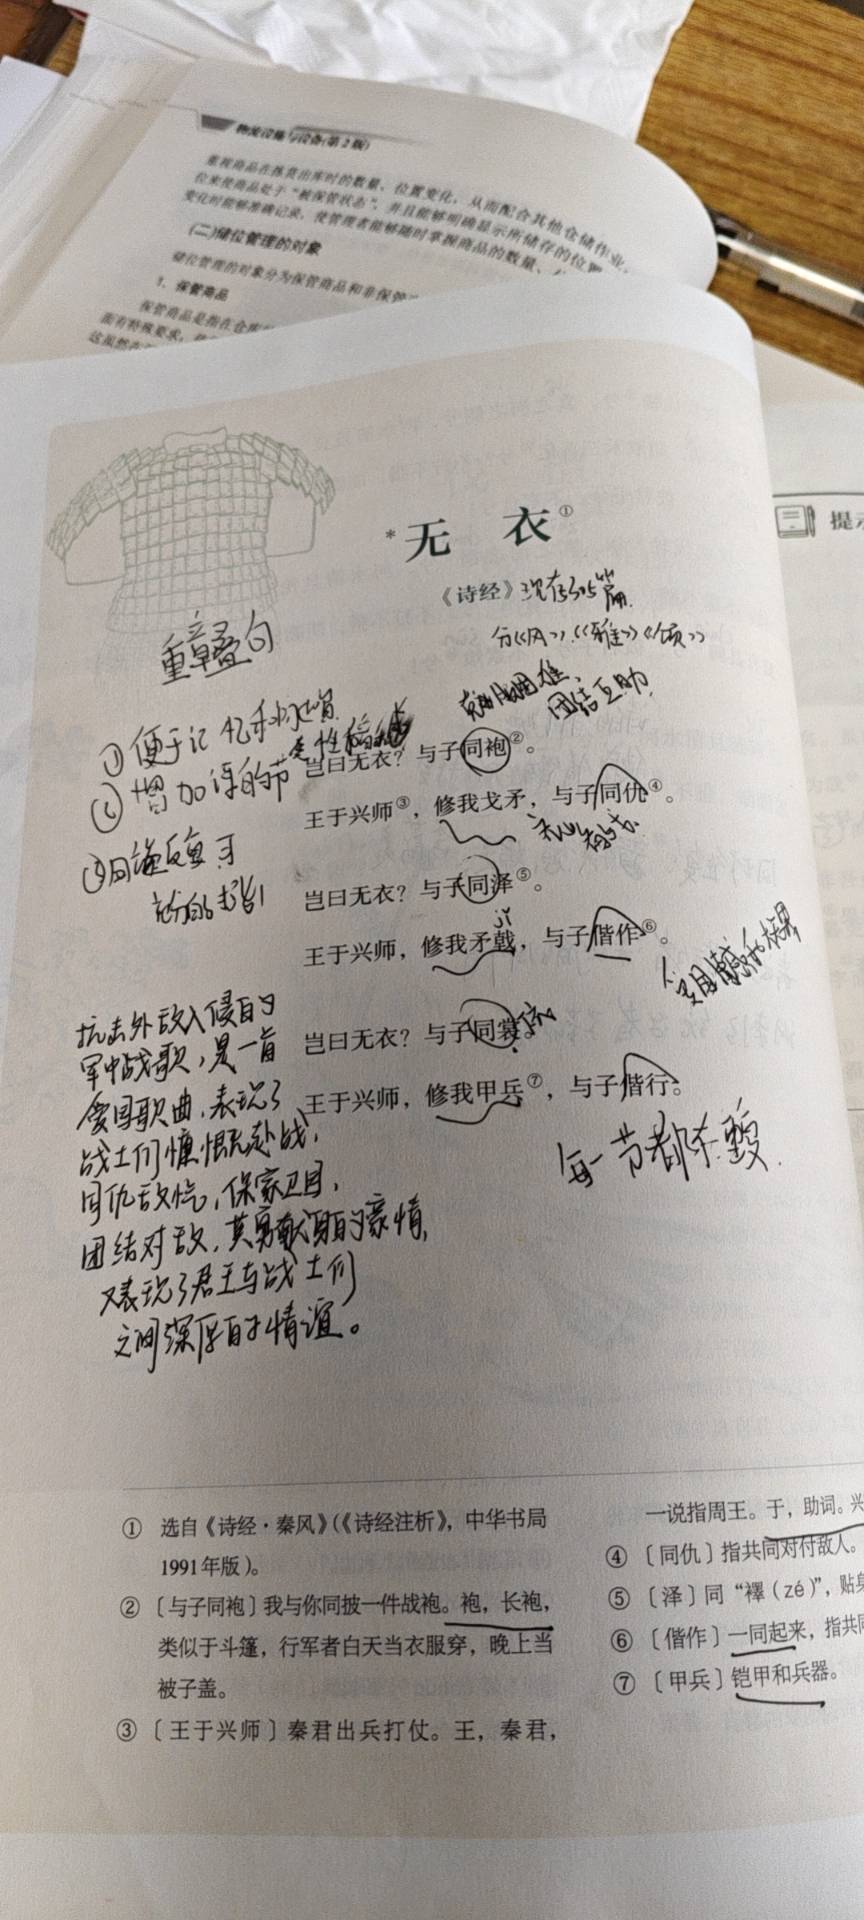 物流设施与设备(第2版)
重视商品在拣货出库时的数量、位置变化，从而配合其他仓储作业，
位来使商品处于“被保管状态”，并且能够明确显示所储存的位置
变化时能够准确记录，使管理者能够随时掌握商品的数量、
(二)储位管理的对象
储位管理的对象分为保管商品和非保管
1. 保管商品
保管商品是指在仓库
面有特殊要求，
提示
*无 衣①
《诗经》现存305篇
分《风》《雅》《颂》
重章叠句
团结互助
①便于记忆和
②增加诗的节
岂曰无衣？与子同袍②。
王于兴师③，修我戈矛，与子同仇④。
③
岂曰无衣？与子同泽⑤。
jǐ
王于兴师，修我矛戟，与子偕作⑥。
岂曰无衣？与子同裳。
王于兴师，修我甲兵⑦，与子偕行。
抗击外敌入侵的
军中战歌，是一首
爱国歌曲，表现了
战士们慷慨赴战，
同仇敌忾，保家卫国，
团结对敌，英勇献身的豪情，
又表现了君王与战士们
之间深厚的情谊。
每一节都
① 选自《诗经·秦风》(《诗经注析》，中华书局
1991年版)。
② 〔与子同袍〕我与你同披一件战袍。袍，长袍，
类似于斗篷，行军者白天当衣服穿，晚上当
被子盖。
③ 〔王于兴师〕秦君出兵打仗。王，秦君，
一说指周王。于，助词。兴
④ 〔同仇〕指共同对付敌人。
⑤ 〔泽〕同“襗(zé)”，贴身
⑥ 〔偕作〕一同起来，指共同
⑦ 〔甲兵〕铠甲和兵器。